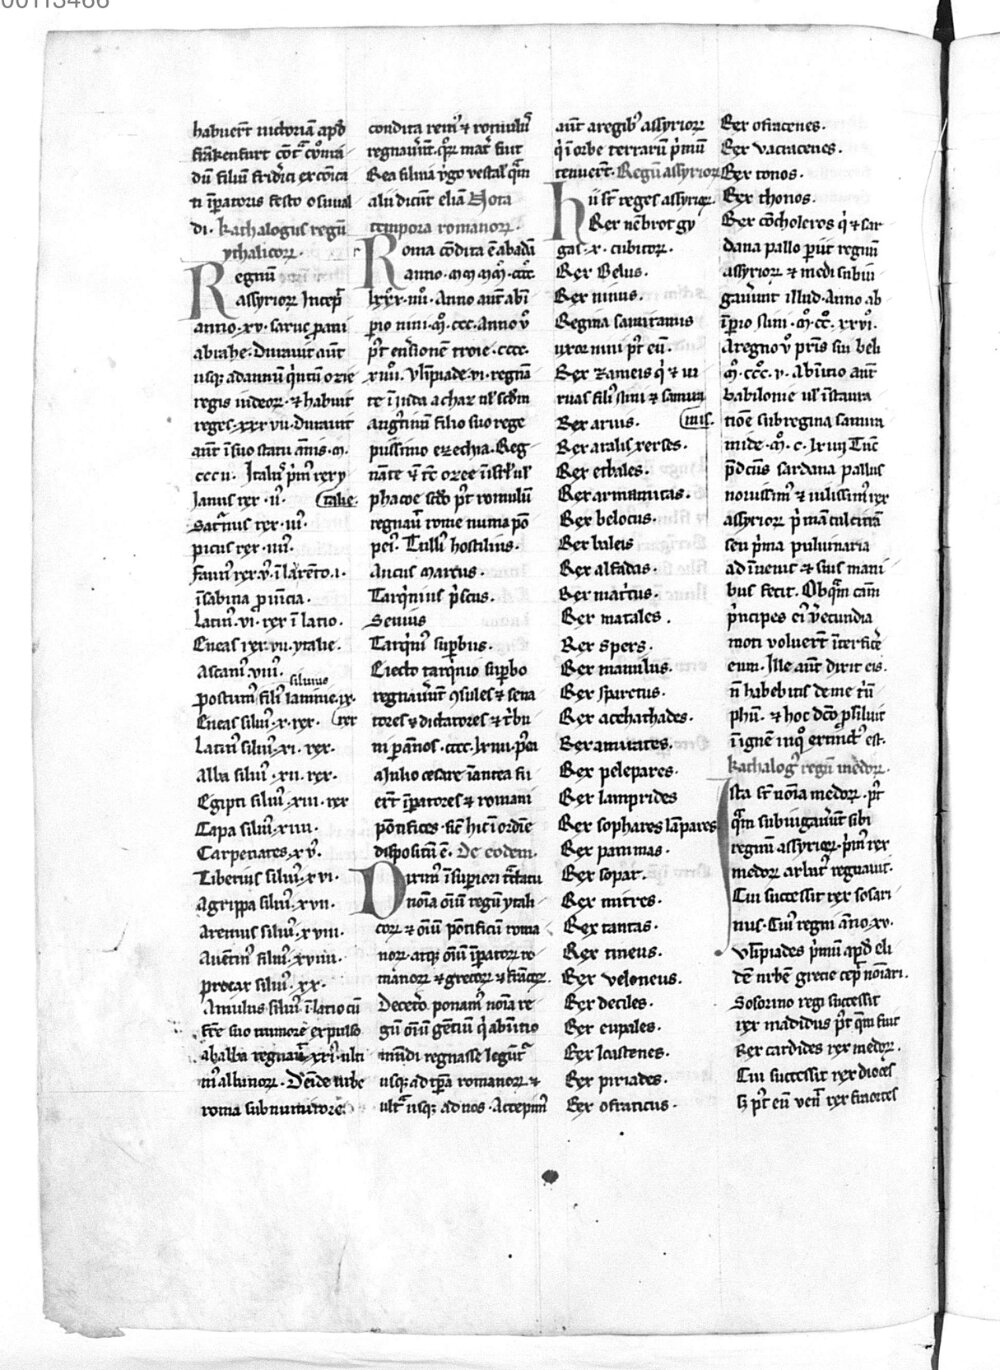 00113466
habuerͭ uictoriam apď
frākenfurt cōt̄ᵃ cōmā
dū filiū fridīci ex cōica
ti īp̄atoris festo o suual
di. kathalogus regū
ythalicoꝝ.
Regnū
assyrioꝝ Incep̄
anno. xv. saruc p̄ani
abrahe. Durauit aūt
usqꝫ ad annū q̇ntū ozie
regis iudeoꝝ. ⁊ habuit
reges. xxx vii. durauit
aūt ī suo statu ānis. m.
ccc ii. Italiꝰ p̓mꝰ rex y
Ianus rex. ii. talie.
Satͬnus rex. iii.
picus rex. iiii.
Faunꝰ rex. v. ī larēto. i.
ī sabina p̱uīcia.
Latinꝰ. vi. rex ī latio.
Eneas rex. vii. ytalie.
Ascaniꝰ viii. siluius
postumꝰ filiꝰ lauinie. ix.
Eneas siluiꝰ. x. rex. rex
Latinꝰ siluiꝰ. xi. rex.
Alba siluiꝰ. xii. rex.
Egiptꝰ siluiꝰ. xiii. rex
Capa siluiꝰ. xiiii.
Carpentates. xv.
Tiberius siluiꝰ. xvi.
Agrippa siluiꝰ. xvii.
Aremus siluiꝰ. xviii.
Auētinꝰ siluiꝰ. xviiii.
procax siluiꝰ. xx.
Amulus siluiꝰ ī latio cū
fͬre suo numore expulso
ab alba regnauͭ. xxi. ulti
mꝰ albanoꝝ. Deīde urbe
roma sub numitore.
condita remꝰ ⁊ romulꝰ
regnauerūt. qͦꝝ mat̄ fuit
Rea silvia ỽgo uestaľ. qͣm
alii dicūt elia Nota
tempora romanoꝝ.
Roma cōdita ē ab adā
anno. m m̄ m̄. cccc.
lxxx. iiii. Anno aūt ab ī
perio nini. m̊. ccc. Anno v̊
p̄t eūsionē troie. cccc.
xiiii. Olīpiade. vi. regnā
te ī iuda achaz uľ scd̄m
augͧtinū filio suo rege
piissimo ezechia. Reg
nāte v̊ sr̄ ozee ī isrľ uľ
phacee scd̄o p̄t romulū
regnauͭ rome numa pō
peiꝰ. Tulliꝰ hostilius.
Ancus marcus.
Tarq̇nius p̓scus.
Seuius
Tarq̇nꝰ suꝑbus.
Eiecto tarq̇nio suꝑbo
regnauerūt ꝯsules ⁊ sena
tores ⁊ dictatores ⁊ tͥbu
ni ꝑ ānos. cccc. lxiiii. p̓ei
a Iulio cesare ī antea fu
erͭ īp̄atores ⁊ romani
pōtifices. sic̄ hic ī ordīe
dispositū ē. De eodem.
Diximꝰ ī suꝑiori tͣctatu
noīa oīū regū ytali
coꝝ ⁊ oīū pōtificū roma
noꝝ. atqꝫ oīū īp̄atoꝝ ro
manoꝝ ⁊ grecoꝝ ⁊ frācoꝝ.
De cet̄o ponamꝰ noīa re
gū oīū gētiū q̇ ab initio
mūdi regnasse legūtͬ
usqꝫ ad tp̄a romanoꝝ ⁊
ultͣ usqꝫ ad nos. Accepimꝰ
aūt a regibꝰ assyrioꝝ
q̇ ī orbe terrarū p̓mū
tenuerͭ. Regū assyrioꝝ
hii sͭ reges assyrioꝝ.
Rex nēbrot gy
gas. x. cubitoꝝ.
Rex Belus.
Rex ninus.
Regina samiramis
uxor nini p̄t eū.
Rex zameis q̇ ⁊ ni
nias filiꝰ nini ⁊ samira
Rex arius. mis.
Rex aralis xerses.
Rex ethales.
Rex armamitas.
Rex belocus.
Rex baleis
Rex alfadas.
Rex matͥus.
Rex matales.
Rex spers.
Rex mamilus.
Rex sparetus.
Rex acchathades.
Rex amintes.
Rex pelepares.
Rex lamprides
Rex sophares lāpares
Rex panimas.
Rex sopar.
Rex mitres.
Rex tantas.
Rex tineus.
Rex veloneus.
Rex deciles.
Rex eupales.
Rex laustenes.
Rex piriades.
Rex ofraticus.
Rex ofracenes.
Rex vacracenes.
Rex tonos.
Rex thonos.
Rex cōcholeros q̇ ⁊ sar
dana pallo ꝑiit regnū
assyrioꝝ ⁊ medi subiu
gauerunt illud. Anno ab
īperio nini. m̊. cc̊. xxvi.
A regno v̊ pr̄is sui beli
m̊. ccc̊. v. Ab initio aūt
babilonie uľ īstaura
tiōe sub regina samira
mide. m̊. c. lxiiii Tūc
p̄dictus sardana pallus
nouissimꝰ ⁊ uilissimꝰ rex
assyrioꝝ p̓ mā culcitrā
seu p̓ma puluinaria
ad īuenit ⁊ suis mani
bus fecit. Ob qͣm cām
p̓ncipes eiꝰ ỽecundia
moti voluerͭ īterficͤe
eum. Ille aūt dixit eis.
n̄ habebitis de me tͥū
phū. ⁊ hoc dc̄o ꝓsiluit
ī ignē inqͦ extinctꝰ est.
kathalogꝰ regū medoꝝ.
Ista sͭ noīa medoꝝ. p̄t
qͣm subiugauerūt sibi
regnū assyrioꝝ. p̓mꝰ rex
medoꝝ arbatꝰ regnauit.
Cui successit rex sosari
nus. Cuiꝰ regni anno. xv.
olīpiades p̓mū apď eli
dē urbem grecie cep̄ nōiari.
Sosorino regi successit
rex madidus p̄t qͣm fuit
Rex cardides rex medoꝝ.
Cui successit rex dioces
s; p̄t eū venͭ rex fraortes